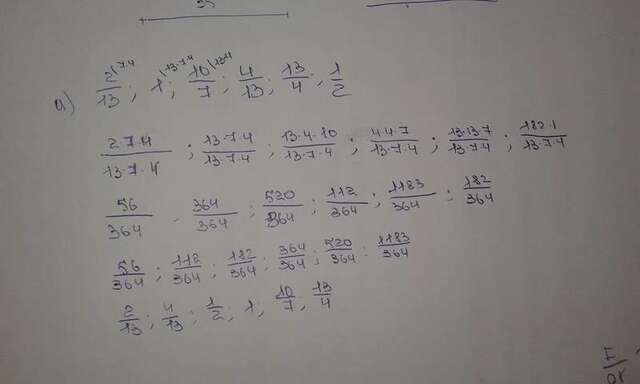 35
a) 2/13 \7·4 ; 1 \13·7·4 ; 10/7 \13·4 ; 4/13 ; 13/4 ; 1/2
2·7·4/13·7·4 ; 13·7·4/13·7·4 ; 13·4·10/13·7·4 ; 4·4·7/13·7·4 ; 13·13·7/13·7·4 ; 182·1/13·7·4
56/364 , 364/364 ; 520/364 ; 112/364 ; 1183/364 ; 182/364
56/364 ; 112/364 ; 182/364 ; 364/364 ; 520/364 ; 1183/364
2/13 ; 4/13 ; 1/2 ; 1 ; 10/7 ; 13/4